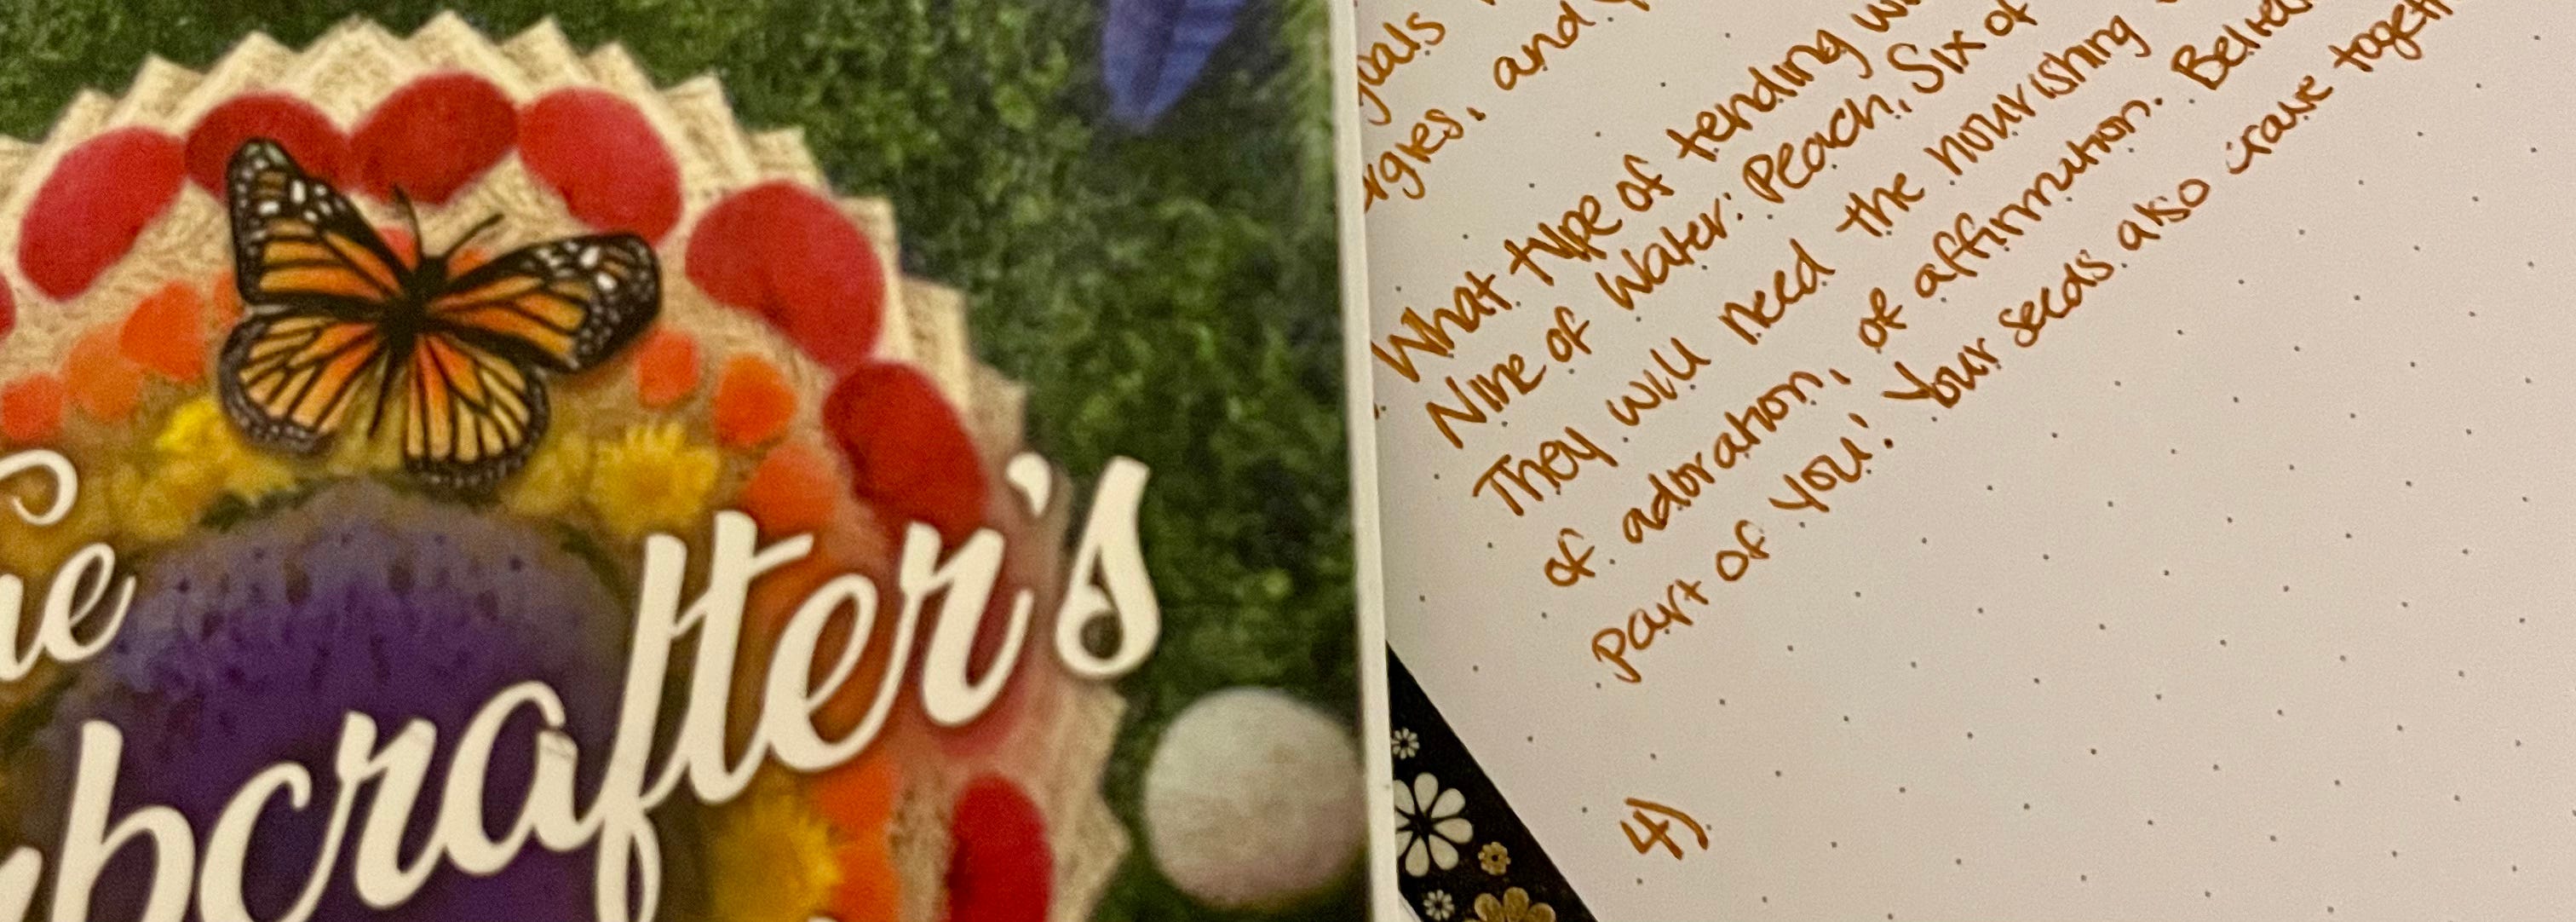 bcrafter's
and
What type of tending
Nine of Water: Peach, Six of
They will need the nourishing
of adoration, of affirmation.
part of you! Your seeds also crave
4)